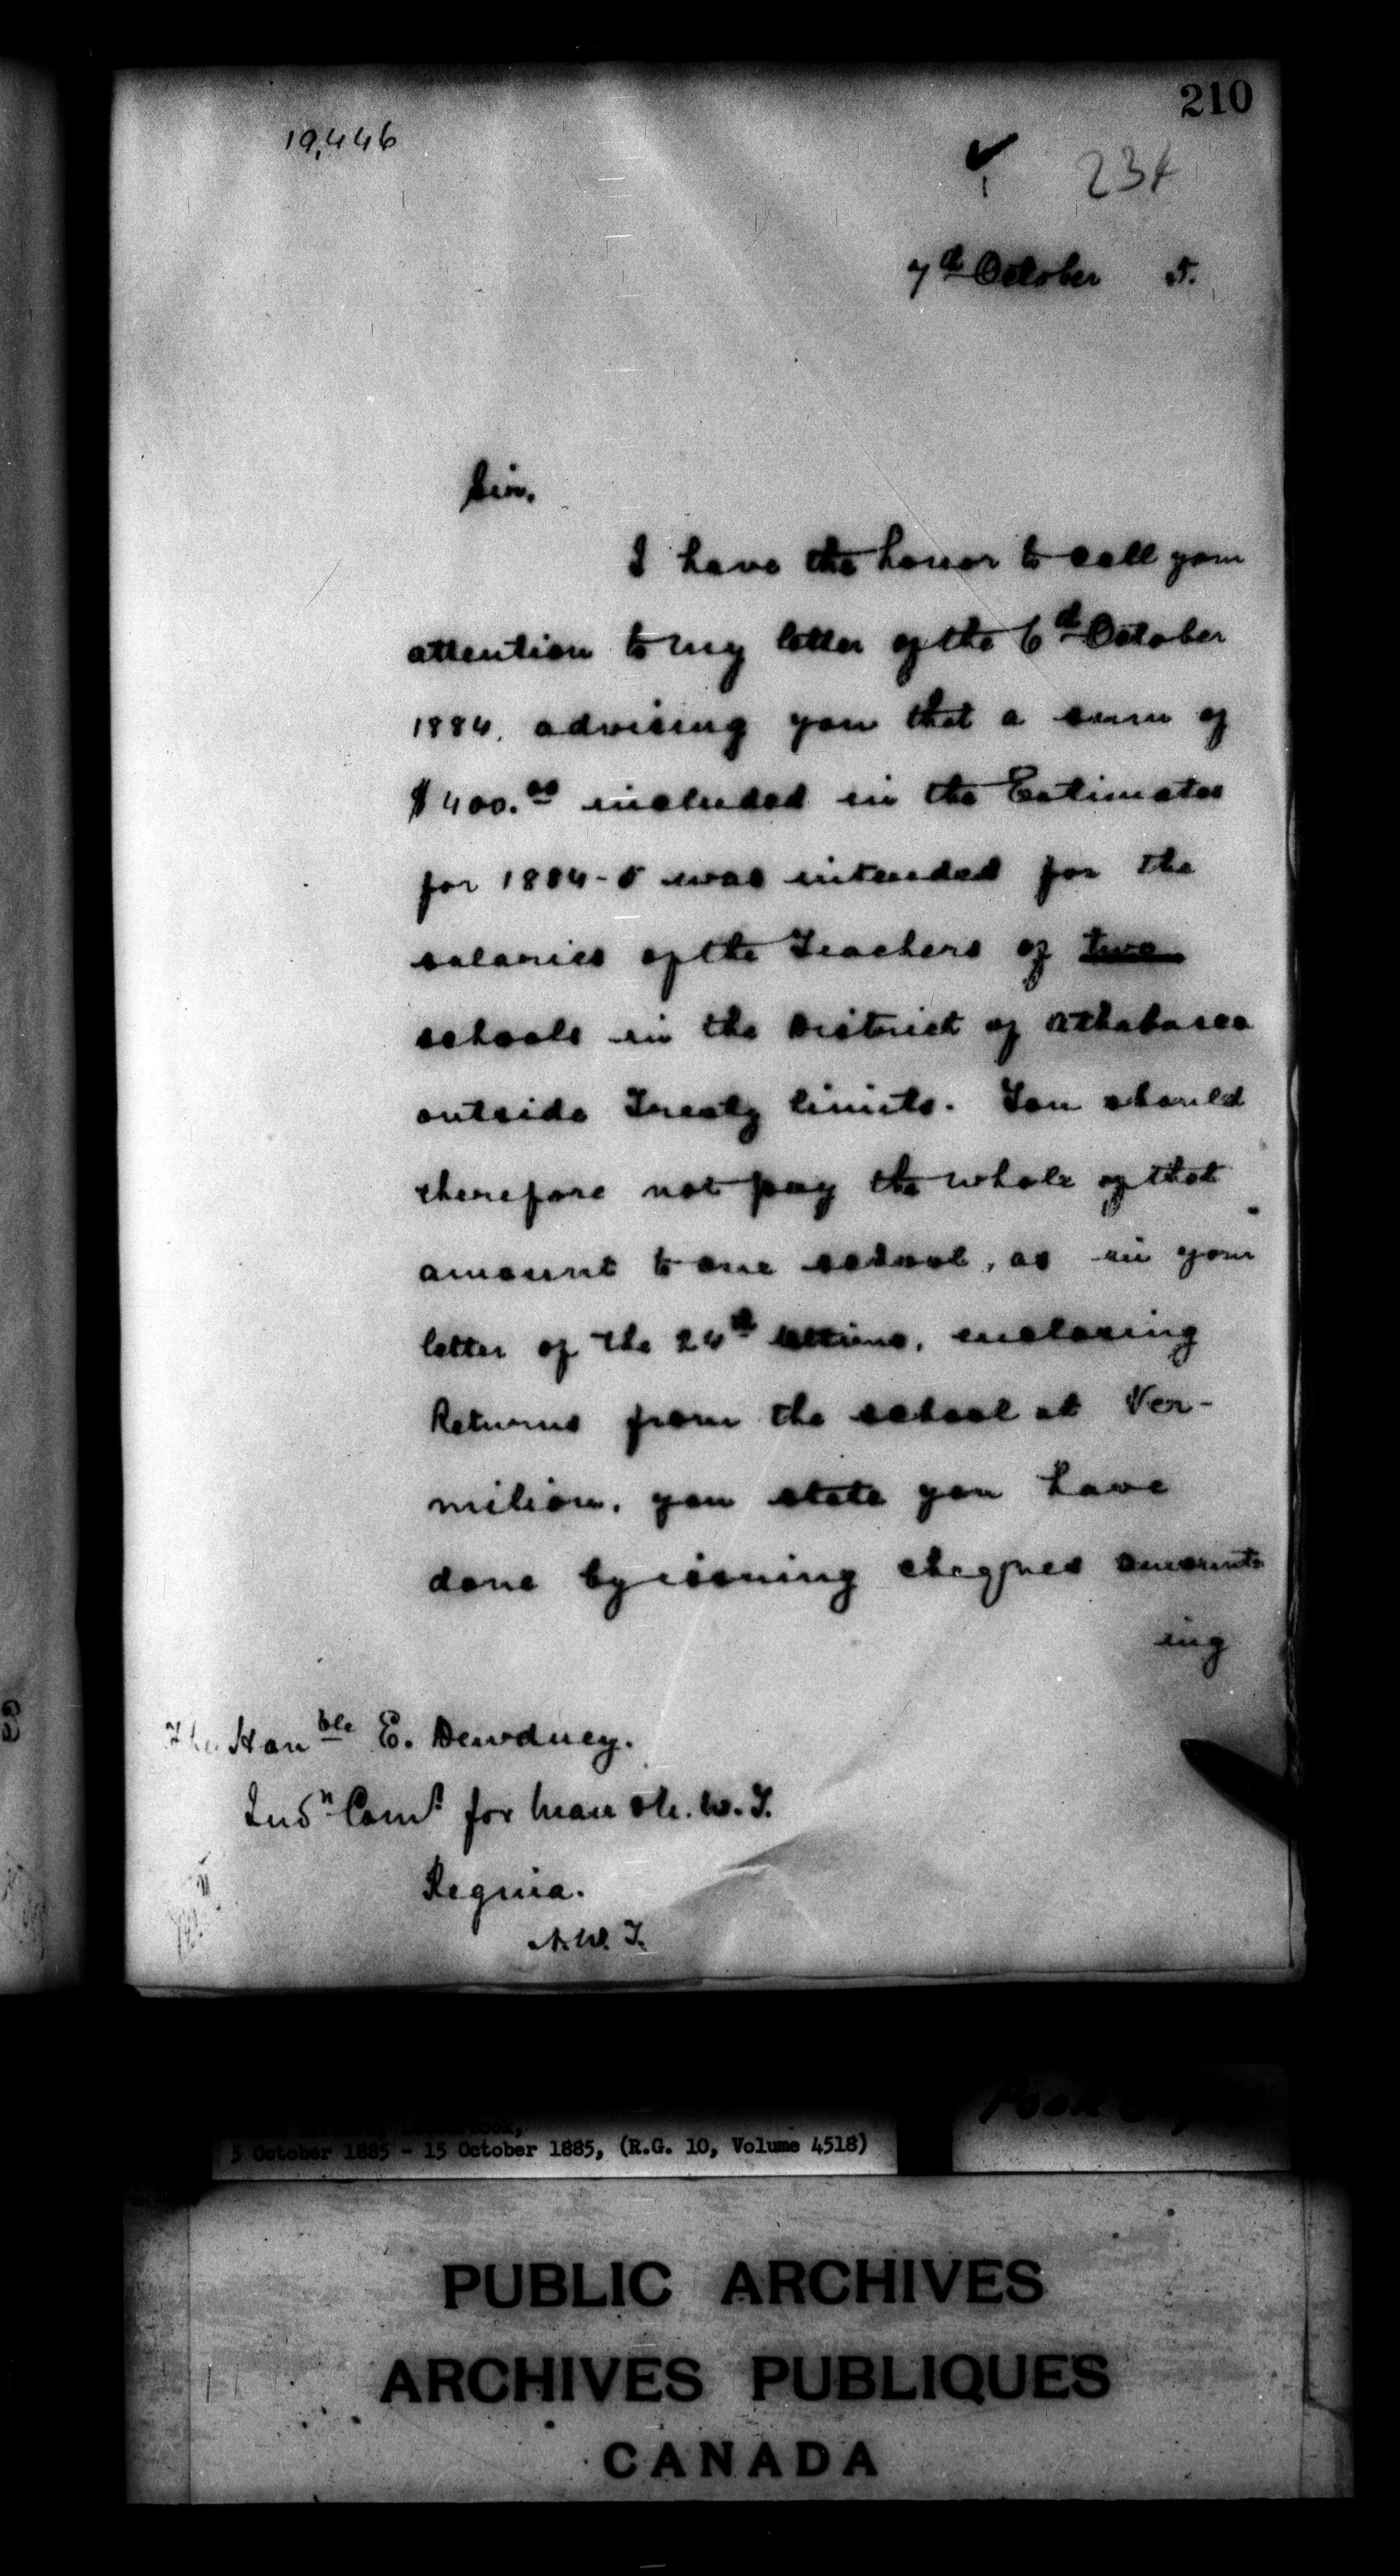 210
19,446
234
7th October 5.
Sir,
I have the honor to call your
attention to my letter of the 6th October
1884, advising you that a sum of
$400.00 included in the Estimates
for 1884-5 was intended for the
salaries of the Teachers of two
schools in the District of Athabasca
outside Treaty limits. You should
therefore not pay the whole of that
amount to one school, as in your
letter of the 24th ultimo, enclosing
Returns from the school at Ver-
milion, you state you have
done by issuing cheques amount-
ing
The Honble E. Dewdney.
Indn Comr for Man & N. W. T.
Regina.
N. W. T.
5 October 1885 - 15 October 1885, (R.G. 10, Volume 4518)
PUBLIC ARCHIVES
ARCHIVES PUBLIQUES
CANADA